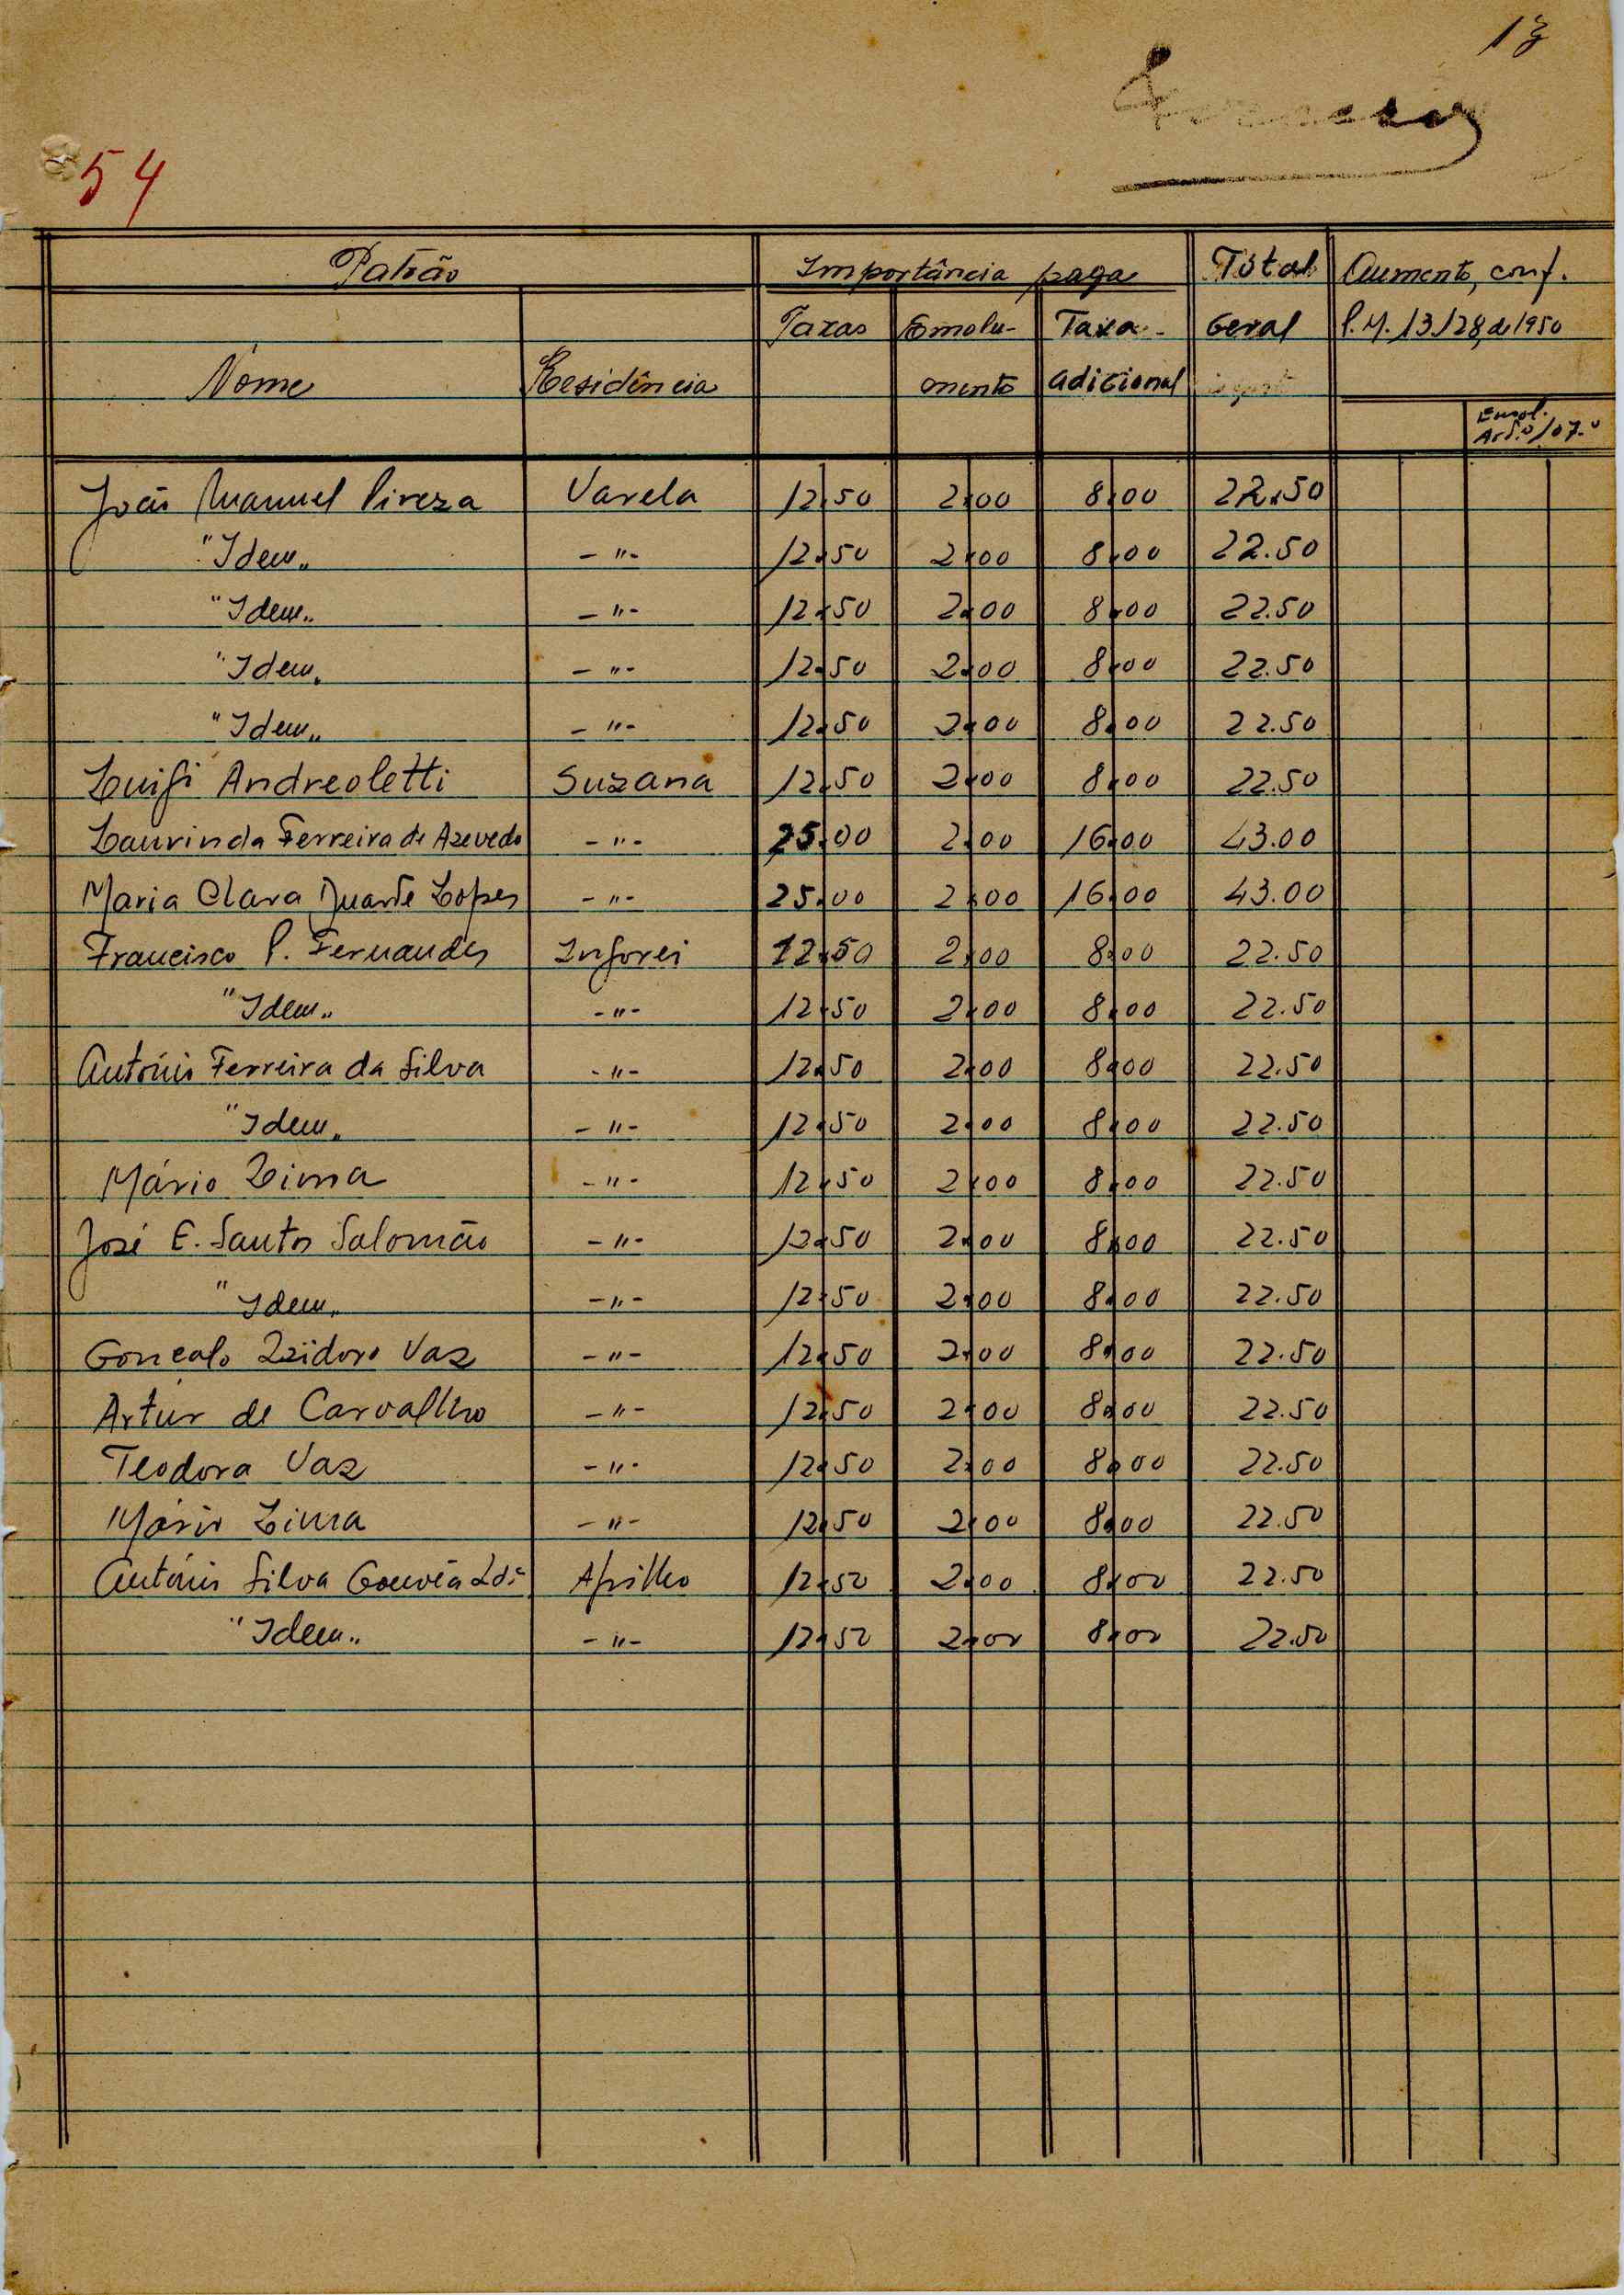 13
54
Patrão Importância paga Total Aumento, conf.
Taxas Emolu- Taxa Geral P.M. 13.128, de 1950
Nome Residência mento adicional
Emol. Art.º 107.º
João Manuel Pireza Varela 12.50 2.00 8.00 22.50
"Idem" -"- 12.50 2.00 8.00 22.50
"Idem" -"- 12.50 2.00 8.00 22.50
"Idem" -"- 12.50 2.00 8.00 22.50
"Idem" -"- 12.50 2.00 8.00 22.50
Luigi Andreoletti Suzana 12.50 2.00 8.00 22.50
Laurinda Ferreira de Azevedo -"- 25.00 2.00 16.00 43.00
Maria Clara Duarte Lopes -"- 25.00 2.00 16.00 43.00
Francisco P. Fernandes Ingorei 12.50 2.00 8.00 22.50
"Idem" -"- 12.50 2.00 8.00 22.50
António Ferreira da Silva -"- 12.50 2.00 8.00 22.50
"Idem" -"- 12.50 2.00 8.00 22.50
Mário Lima -"- 12.50 2.00 8.00 22.50
José E. Santos Salomão -"- 12.50 2.00 8.00 22.50
"Idem" -"- 12.50 2.00 8.00 22.50
Gonçalo Izidoro Vaz -"- 12.50 2.00 8.00 22.50
Artur de Carvalho -"- 12.50 2.00 8.00 22.50
Teodora Vaz -"- 12.50 2.00 8.00 22.50
Mário Lima -"- 12.50 2.00 8.00 22.50
António Silva Gouvêa Ldª Apilho 12.50 2.00 8.00 22.50
"Idem" -"- 12.50 2.00 8.00 22.50